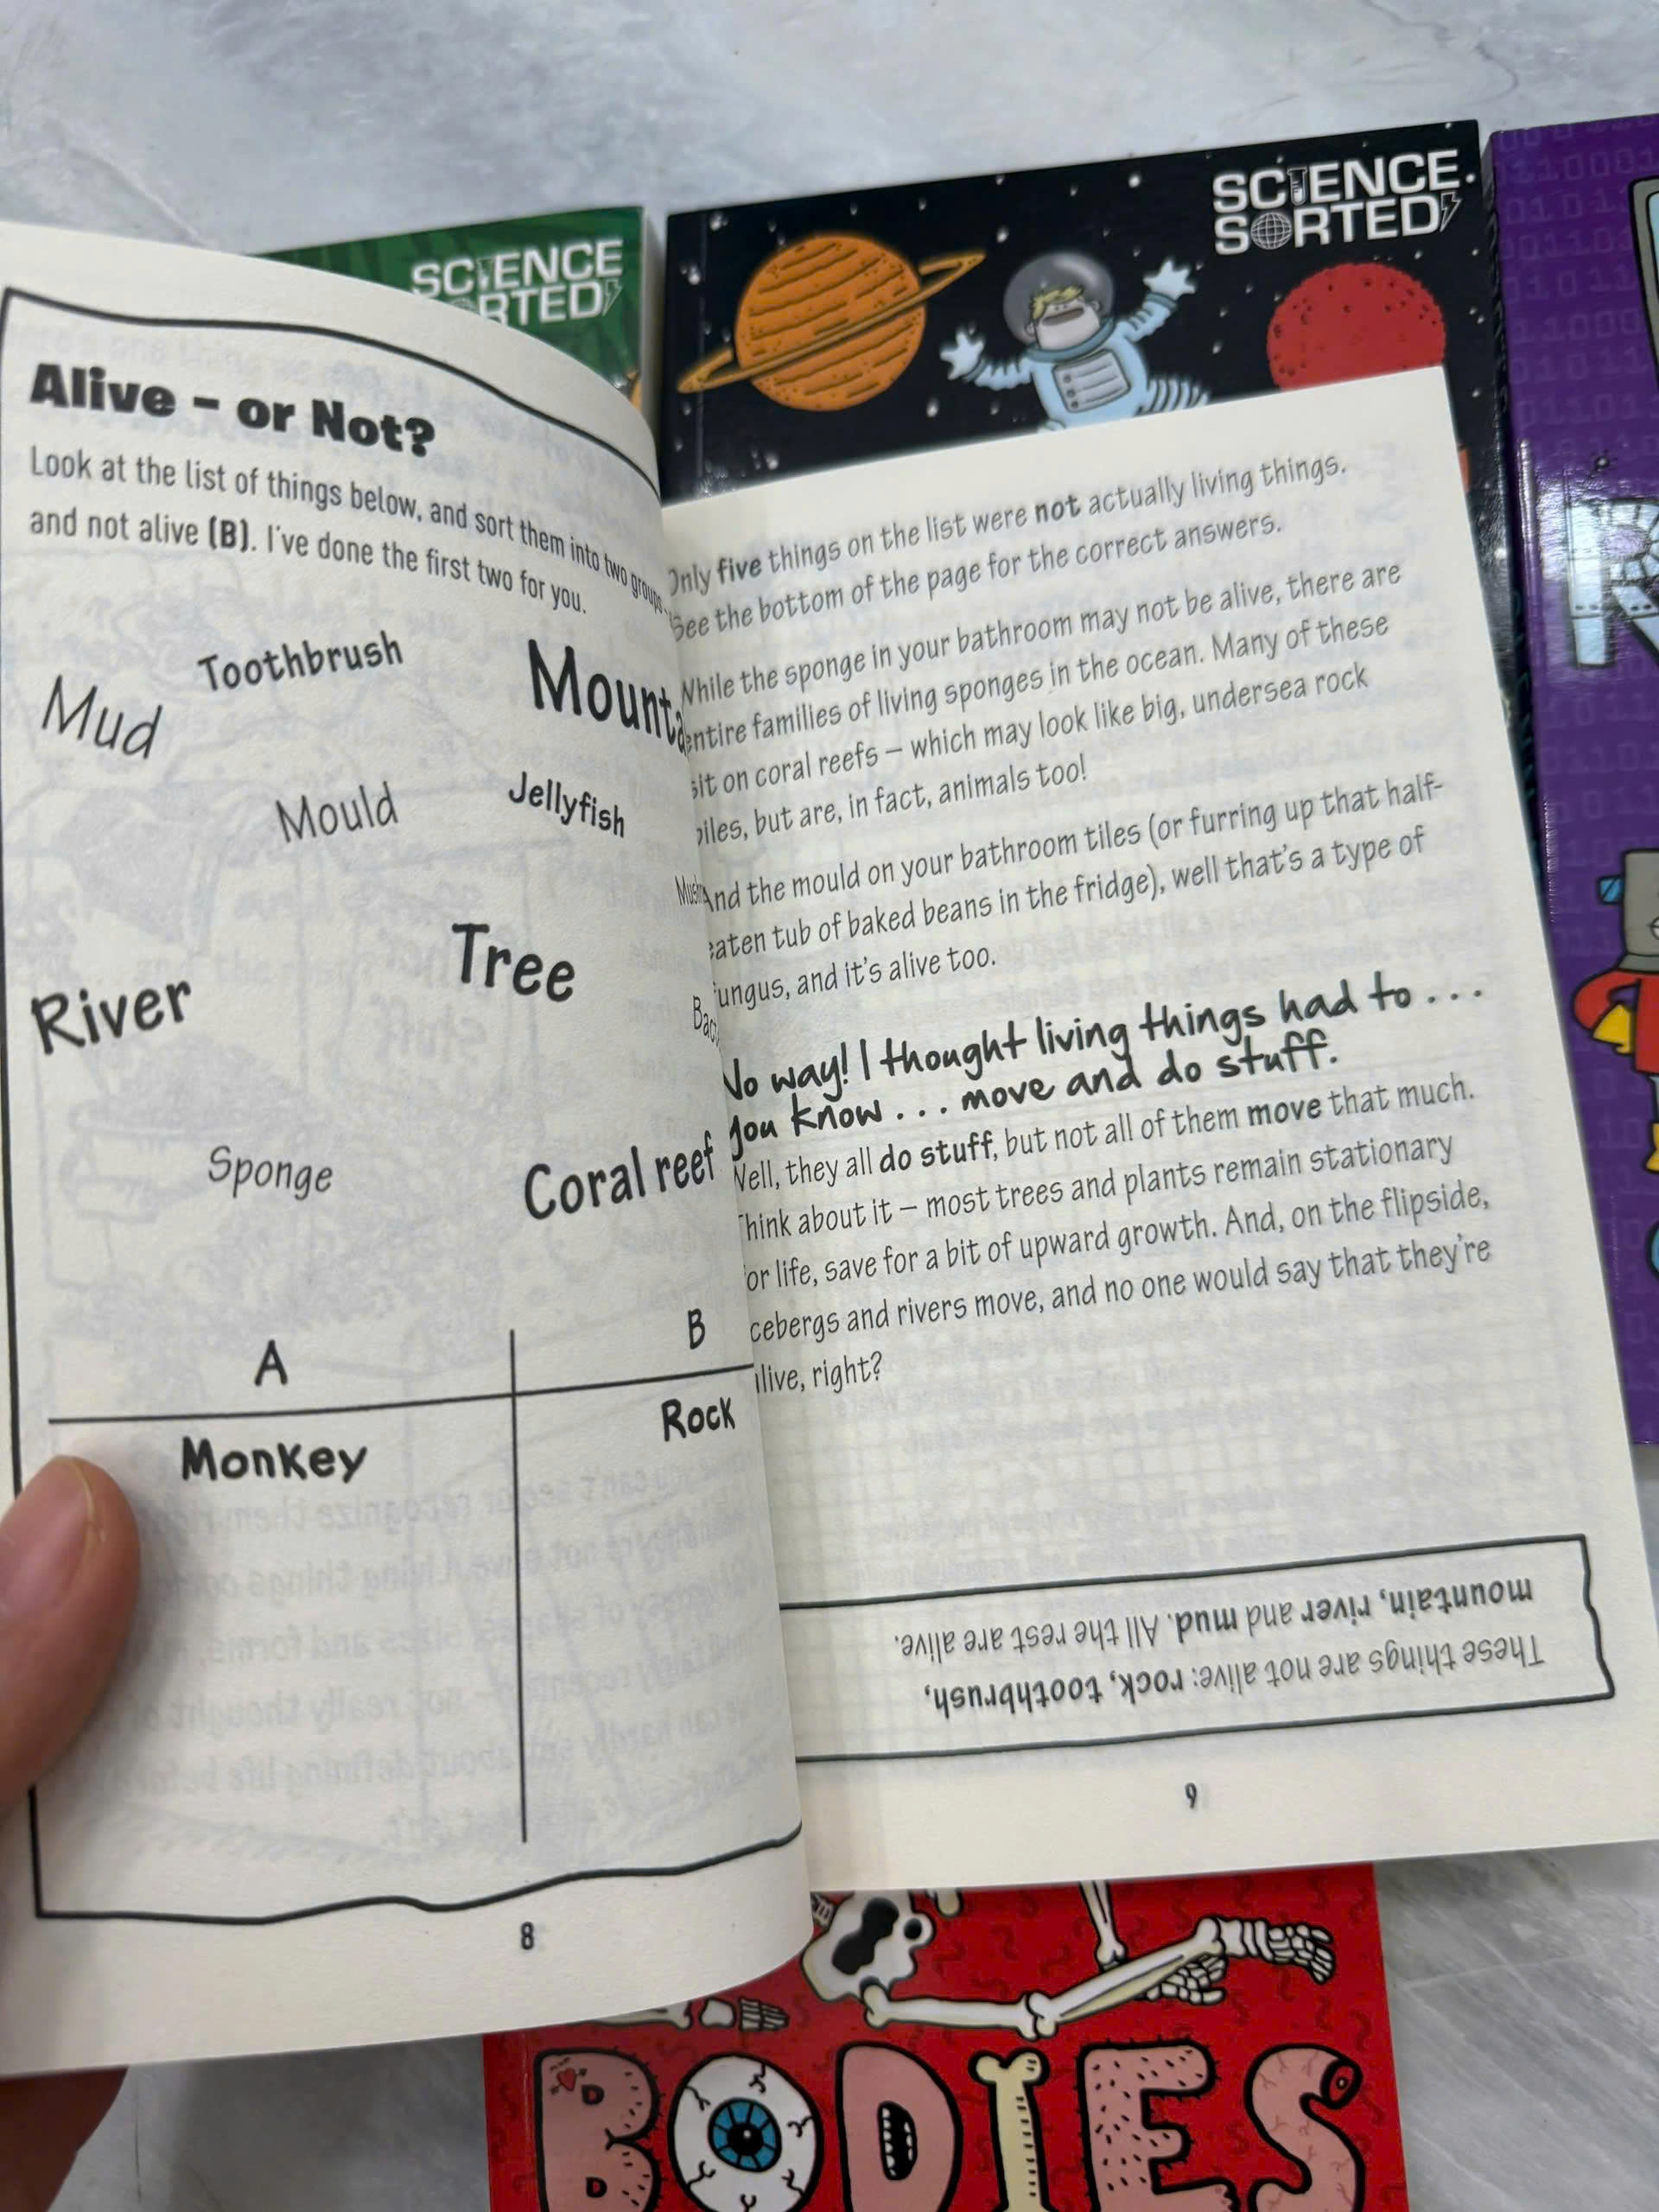 SCIENCE
SORTED
SCIENCE
Alive – or Not?
Look at the list of things below, and sort them into two groups
and not alive (B). I've done the first two for you.
Toothbrush
Mud
Mould
Jellyfish
Tree
River
Sponge
Coral reef
A
B
Monkey
Rock
8
Only five things on the list were not actually living things.
See the bottom of the page for the correct answers.
While the sponge in your bathroom may not be alive, there are
entire families of living sponges in the ocean. Many of these
sit on coral reefs – which may look like big, undersea rock
piles, but are, in fact, animals too!
And the mould on your bathroom tiles (or furring up that half-
eaten tub of baked beans in the fridge), well that's a type of
fungus, and it's alive too.
No way! I thought living things had to ...
you know ... move and do stuff.
Well, they all do stuff, but not all of them move that much.
Think about it – most trees and plants remain stationary
for life, save for a bit of upward growth. And, on the flipside,
icebergs and rivers move, and no one would say that they're
alive, right?
These things are not alive: rock, toothbrush,
mountain, river and mud. All the rest are alive.
9
BODIES